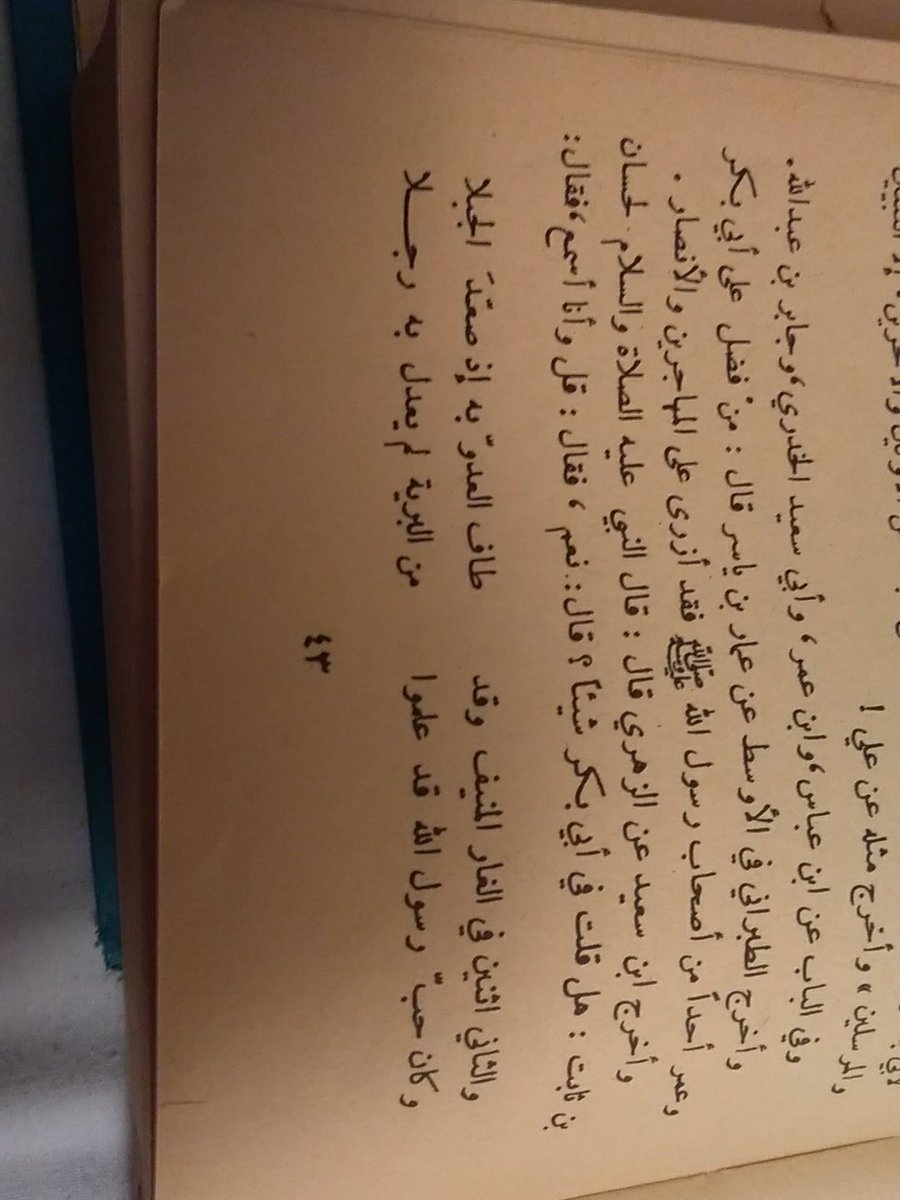 والمرسلين» وأخرج مثله عن علي !
وفي الباب عن ابن عباس، وابن عمر، وأبي سعيد الخدري، وجابر بن عبدالله.
وأخرج الطبراني في الأوسط عن عمار بن ياسر قال : منْ فضل على أبي بكر
وعمر أحداً من أصحاب رسول الله ﷺ فقد أزرى على المهاجرين والأنصار .
وأخرج ابن سعيد عن الزهري قال : قال النبي عليه الصلاة والسلام لحسان
بن ثابت : هل قلت في أبي بكر شيئاً ؟ قال: نعم ، فقال : قل وأنا أسمع، فقال:
والثاني اثنين في الغار المنيف وقد طاف العدوّ به إذ صعّدَ الجبلا
وكان حبّ رسول الله قد علموا من البرية لم يعدل به رجـــلا
٤٣